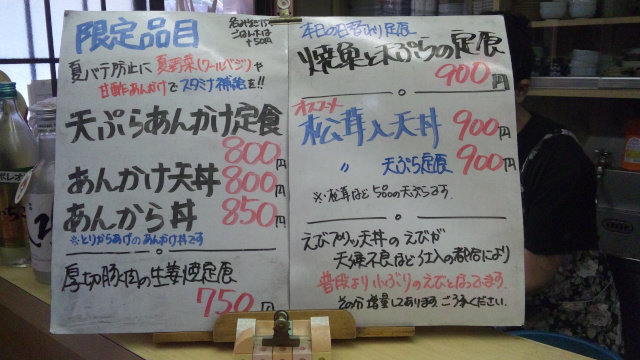 限定品目
夏バテ防止に夏野菜(クールベジ)や
甘酢あんかけでスタミナ補給を!!
天ぷらあんかけ定食
800円
あんかけ天丼 800円
あんから丼 850円
※とりからあげのあんかけ丼です
厚切豚肉の生姜焼定食
750円
本日の日替り定食
焼魚と天ぷらの定食
900円
オススメ
松茸入天丼 900円
〃 天ぷら定食 900円
えびプリッ天丼のえびが
天候不良など仕入の都合により
普段より小ぶりのえびとなってます。
その分増量してあります。ご了承ください。